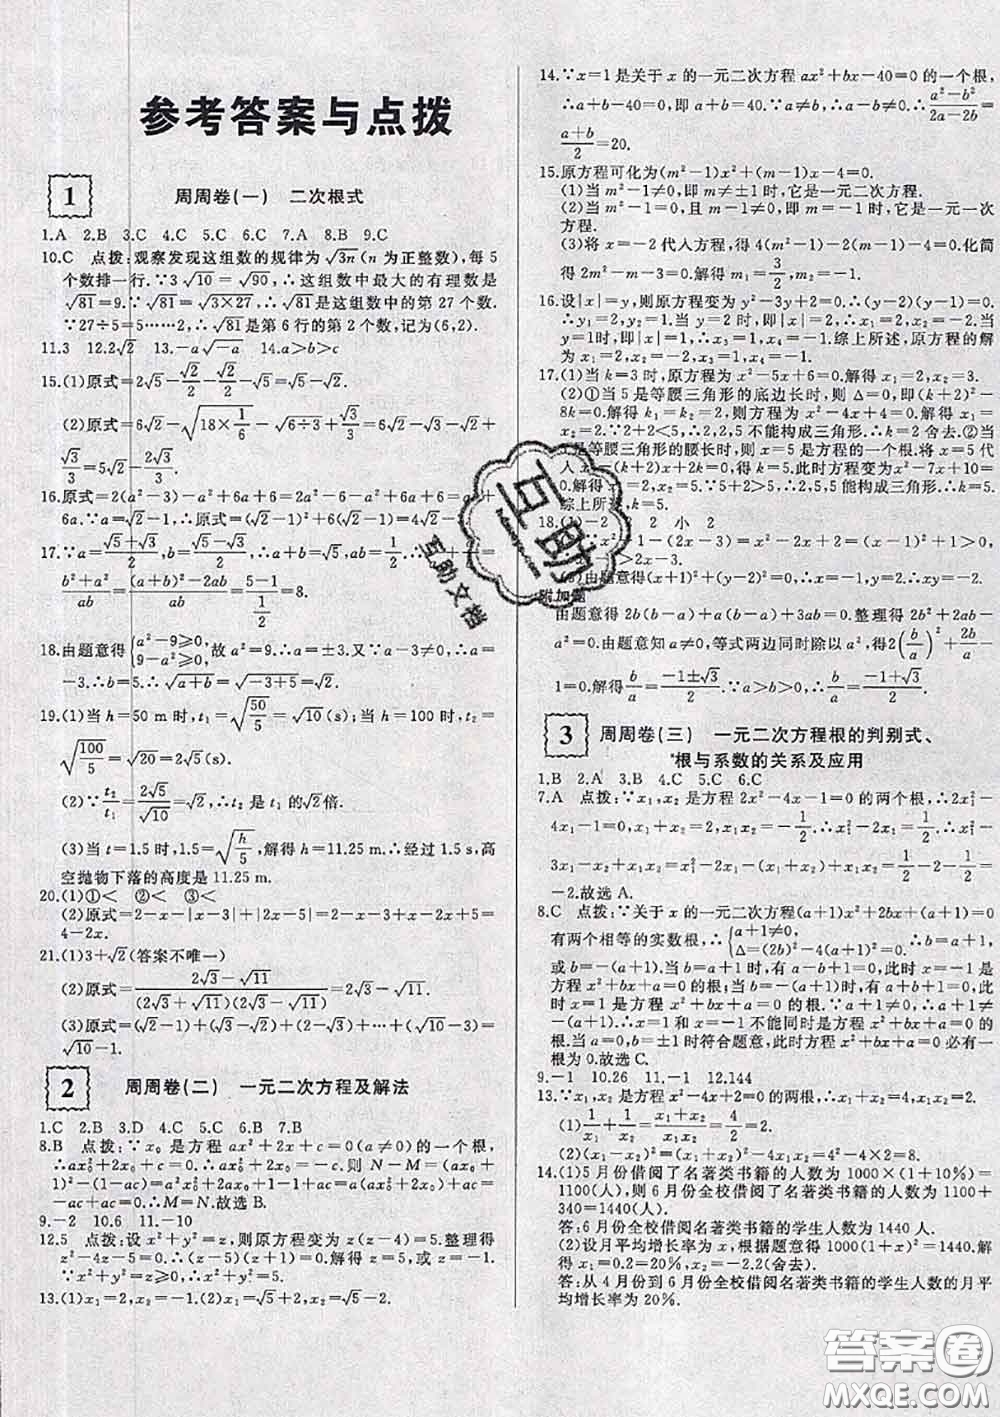 参考答案与点拨
1 周周卷(一) 二次根式
1.A 2.B 3.C 4.C 5.C 6.C 7.A 8.B 9.C
10.C 点拨:观察发现这组数的规律为√3n(n 为正整数),每 5
个数排一行.∵3√10=√90,∴这组数中最大的有理数是
√81=9.∵√81=√3×27,∴√81是这组数中的第 27 个数.
∵27÷5=5……2,∴√81是第 6 行的第 2 个数,记为(6,2).
11.3 12.2√2 13.-a√-a 14.a>b>c
15.(1)原式=2√5-√2/2-√2/2-√5=√5-√2.
(2)原式=6√2-√(18×1/6)-√3+√3/3=6√2-√3-√2+
√3/3=5√2-2√3/3.
16.原式=2(a²-3)-a²+6a+6=2a²-6-a²+6a+6=a²+
6a.∵a=√2-1,∴原式=(√2-1)²+6(√2-1)=4√2-3.
17.∵a=(√5+√3)/2,b=(√5-√3)/2,∴a+b=√5,ab=1/2.∴b/a+a/b=
(b²+a²)/ab=((a+b)²-2ab)/ab=(5-1)/(1/2)=8.
18.由题意得{a²-9≥0, 9-a²≥0,故 a²=9.∴a=±3.又∵a-3≠0,∴a=
-3.∴b=5.∴√(a+b)=√(-3+5)=√2.
19.(1)当 h=50 m 时,t₁=√(50/5)=√10(s);当 h=100 时,t₂=
√(100/5)=√20=2√5(s).
(2)∵t₂/t₁=2√5/√10=√2,∴t₂ 是 t₁ 的√2倍.
(3)当 t=1.5 时,1.5=√(h/5),解得 h=11.25.∴经过 1.5 s,高
空抛物下落的高度是 11.25 m.
20.(1)①< ②< ③<
(2)原式=2-x-|3-x|+|5-x|=2-x-3+x+5-x=
4-2x.
21.(1)3+√2(答案不唯一)
(2)原式=(2√3-√11)/((2√3+√11)(2√3-√11))=2√3-√11.
(3)原式=(√2-1)+(√3-√2)+(2-√3)+…+(√10-3)=
√10-1.
2 周周卷(二) 一元二次方程及解法
1.C 2.B 3.D 4.C 5.C 6.B 7.B
8.B 点拨:∵x₀ 是方程 ax²+2x+c=0(a≠0)的一个根,
∴ax₀²+2x₀+c=0,∴ax₀²+2x₀=-c.则 N-M=(ax₀+
1)²-(1-ac)=a²x₀²+2ax₀+1-1+ac=a(ax₀²+2x₀)+
ac=-ac+ac=0,∴M=N.故选 B.
9.-2 10.6 11.-10
12.5 点拨:设 x²+y²=z,则原方程变为 z(z-4)=5.整理得
z²-4z-5=0,∴(z-5)(z+1)=0.解得 z=5,或 z=-1.
∵x²+y²=z≥0,∴z=5.∴x²+y²=5.
13.(1)x₁=2,x₂=-1. (2)x₁=√5-2,x₂=-√5-2.
14.∵x=1 是关于 x 的一元二次方程 ax²+bx-40=0 的一个根,
∴a+b-40=0,即 a+b=40.∵a≠b,∴a-b≠0,∴(a²-b²)/(2a-2b)=
(a+b)/2=20.
15.原方程可化为(m²-1)x²+(m-1)x-4=0.
(1)当 m²-1≠0,即 m≠±1 时,它是一元二次方程.
(2)当 m²-1=0,且 m-1≠0,即 m=-1 时,它是一元一次
方程.
(3)将 x=-2 代入方程,得 4(m²-1)-2(m-1)-4=0.化简
得 2m²-m-3=0.解得 m₁=3/2,m₂=-1.
16.设|x|=y,则原方程变为 y²-3y+2=0.∴(y-2)(y-1)=0.
∴y₁=2,y₂=1.当 y=2 时,即|x|=2,∴x₁=2,x₂=-2.当
y=1 时,即|x|=1,∴x₃=1,x₄=-1.综上所述,原方程的解
为 x₁=2,x₂=-2,x₃=1,x₄=-1.
17.(1)当 k=3 时,原方程为 x²-5x+6=0.解得 x₁=2,x₂=3.
(2)①当 5 是等腰三角形的底边长时,则 Δ=0,即(k+2)²-
8k=0.解得 k₁=k₂=2,则方程为 x²-4x+4=0.解得 x₁=
x₂=2.∵2+2<5,∴2,2,5 不能构成三角形.∴k=2 舍去.②当
5 是等腰三角形的腰长时,则 x=5 是方程的一个根.将 x=5 代
入 x²-(k+2)x+2k=0,得 k=5.此时方程为 x²-7x+10=
0.解得 x₁=5,x₂=2.∵5+2>5,∴2,5,5能构成三角形.∴k=5.
综上所述,k=5.
18.(1)-2 2 小 2
∵x²-1-(2x-3)=x²-2x+2=(x-1)²+1>0,
-1>2x-3.
(3)由题意得(x+1)²+(y-2)²=0.∴x=-1,y=2,∴xy=-2.
附加题
由题意得 2b(b-a)+a(b-a)+3ab=0.整理得 2b²+2ab-
a²=0.由题意知 a≠0,等式两边同时除以 a²,得2(b/a)²+2b/a-
1=0.解得 b/a=(-1±√3)/2.∵a>b>0,∴b/a=(-1+√3)/2.
3 周周卷(三) 一元二次方程根的判别式、
根与系数的关系及应用
1.B 2.A 3.B 4.C 5.C 6.C
7.A 点拨:∵x₁,x₂ 是方程 2x²-4x-1=0 的两个根,∴2x₁²-
4x₁-1=0,x₁+x₂=2,x₁x₂=-1/2.∴x₁²-2x₁=1/2.∴x₁²-
3x₁-x₂+x₁x₂=x₁²-2x₁-(x₁+x₂)+x₁x₂=1/2-2-1/2=
-2.故选 A.
8.C 点拨:∵关于 x 的一元二次方程(a+1)x²+2bx+(a+1)=0
有两个相等的实数根,∴{a+1≠0, Δ=(2b)²-4(a+1)²=0.∴b=a+1,
或b=-(a+1).当 b=a+1 时,有 a-b+1=0,此时 x=-1 是
方程 x²+bx+a=0 的根;当 b=-(a+1)时,有 a+b+1=0,此
时 x=1 是方程 x²+bx+a=0 的根.∵a+1≠0,∴a+1≠
-(a+1).∴x=1 和 x=-1 不能同时是方程 x²+bx+a=0 的
根.当 a=0,b=±1 时符合题意,此时方程 x²+bx+a=0 必有一
根为 0.故选 C.
9.-1 10.26 11.-1 12.144
13.∵x₁,x₂ 是方程 x²-4x+2=0 的两根,∴x₁+x₂=4,x₁x₂=2.
(1)1/x₁+1/x₂=(x₁+x₂)/x₁x₂=4/2=2.
(2)(x₁-x₂)²=(x₁+x₂)²-4x₁x₂=4²-4×2=8.
14.(1)5 月份借阅了名著类书籍的人数为 1000×(1+10%)=
1100(人),则 6 月份全校借阅了名著类书籍的人数为 1100+
340=1440(人).
答:6 月份全校借阅名著类书籍的学生人数为 1440 人.
(2)设月平均增长率为 x,根据题意得 1000(1+x)²=1440.解
得 x₁=0.2=20%,x₂=-2.2(舍去).
答:从 4 月份到 6 月份全校借阅名著类书籍的学生人数的月平
均增长率为 20%.
互助
互助文档
答案圈
MXQE.COM